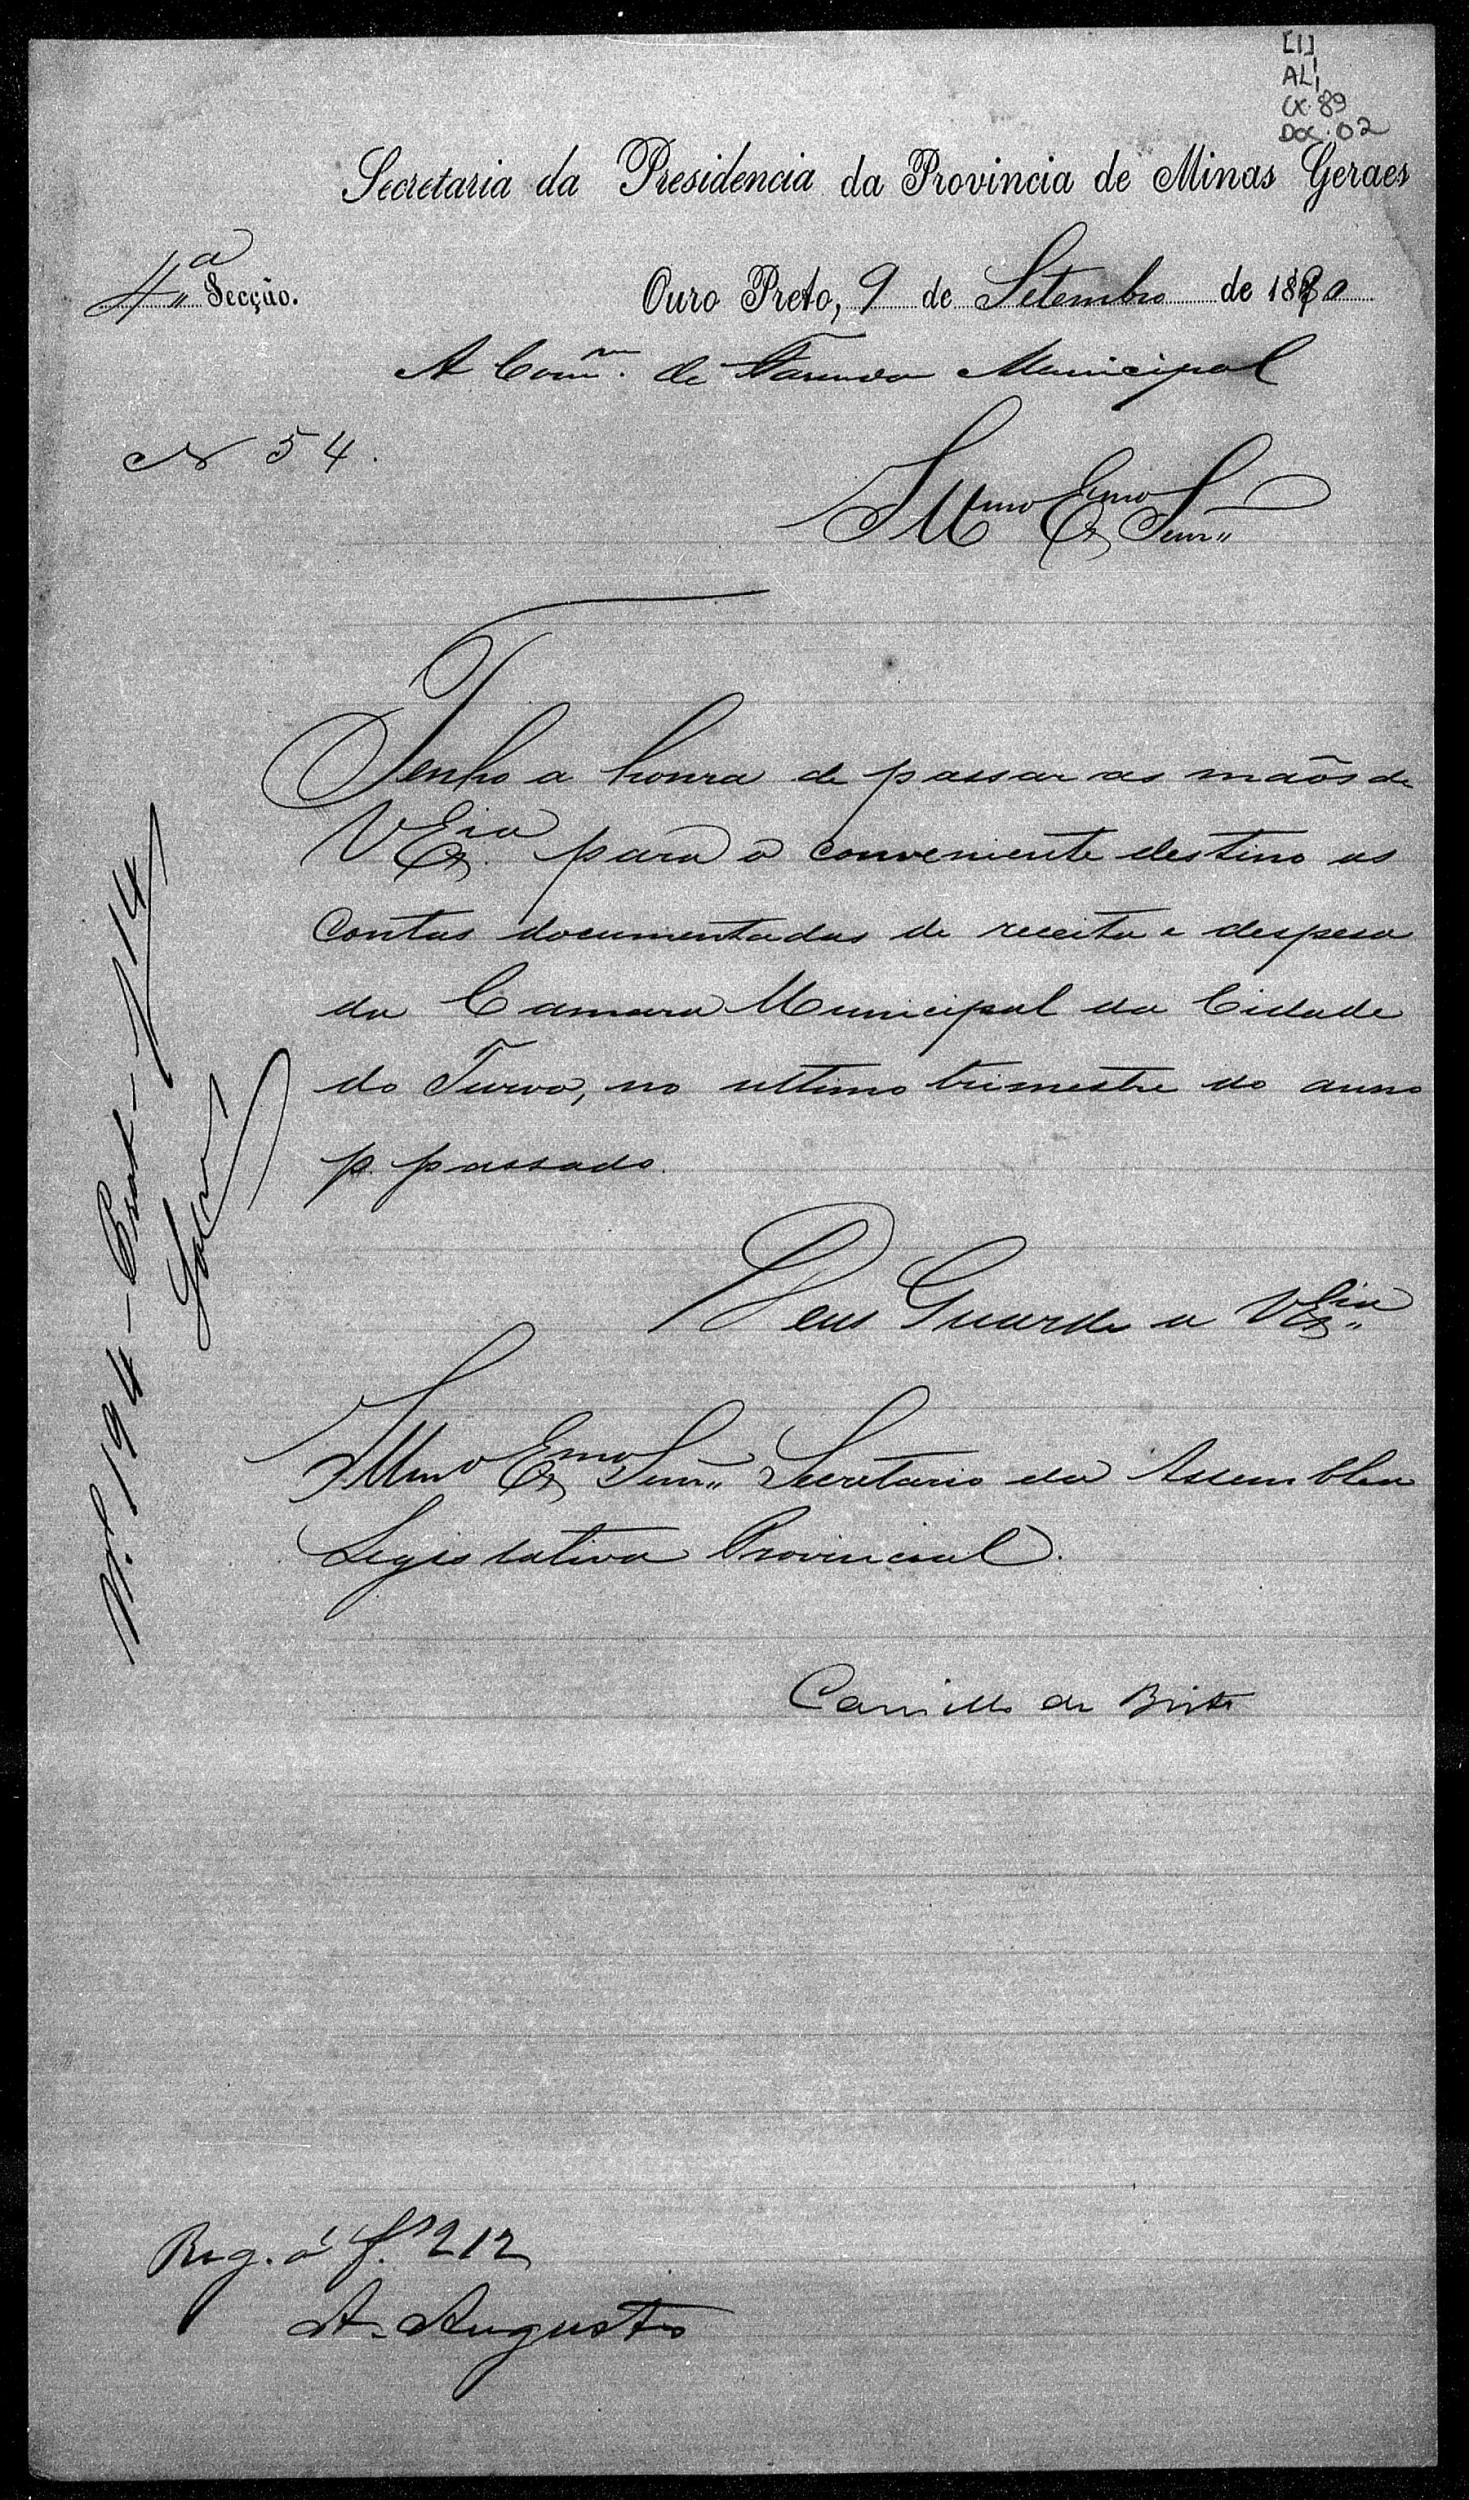 [1]
AL1
CX. 89
DOC. 02
Secretaria da Presidencia da Provincia de Minas Geraes
4ª Secção.
Ouro Preto, 9 de Setembro de 1880
A Comm. de Fazenda Municipal
N 54.
Illmo Exmo Senr.
Tenho a honra de passar as mãos de
V Excia para o conveniente destino as
Contas documentadas de receita e despesa
da Camara Municipal da Cidade
do Turvo, no ultimo trimestre do anno
p. passado.
Deus Guarde a V Excia
Illmo Exmo Senr. Secretario da Assemblea
Legislativa Provincial.
Camillo de Brito
N. 194 - Prat - 14
Reg. á f. 212
A. Augusto